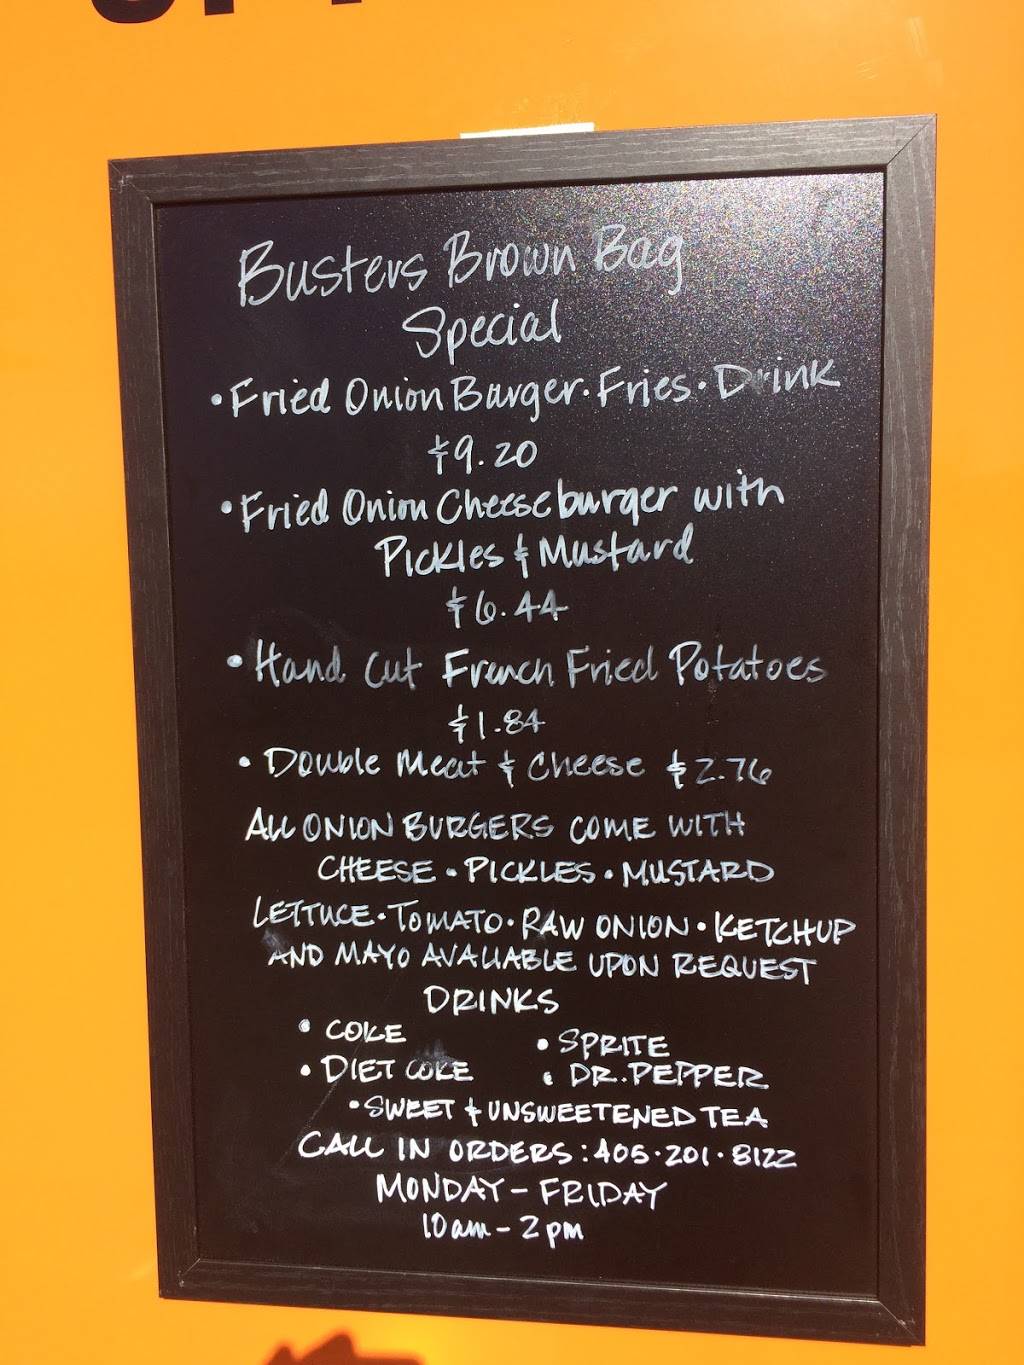 Busters Brown Bag
Special
• Fried Onion Burger • Fries • Drink
$9.20
• Fried Onion Cheeseburger with
Pickles & Mustard
$6.44
• Hand Cut French Fried Potatoes
$1.84
• Double Meat & Cheese $2.76
ALL ONION BURGERS COME WITH
CHEESE • PICKLES • MUSTARD
LETTUCE • TOMATO • RAW ONION • KETCHUP
AND MAYO AVALIABLE UPON REQUEST
DRINKS
• COKE • SPRITE
• DIET COKE • DR. PEPPER
• SWEET & UNSWEETENED TEA
CALL IN ORDERS: 405•201•8122
MONDAY - FRIDAY
10am - 2pm